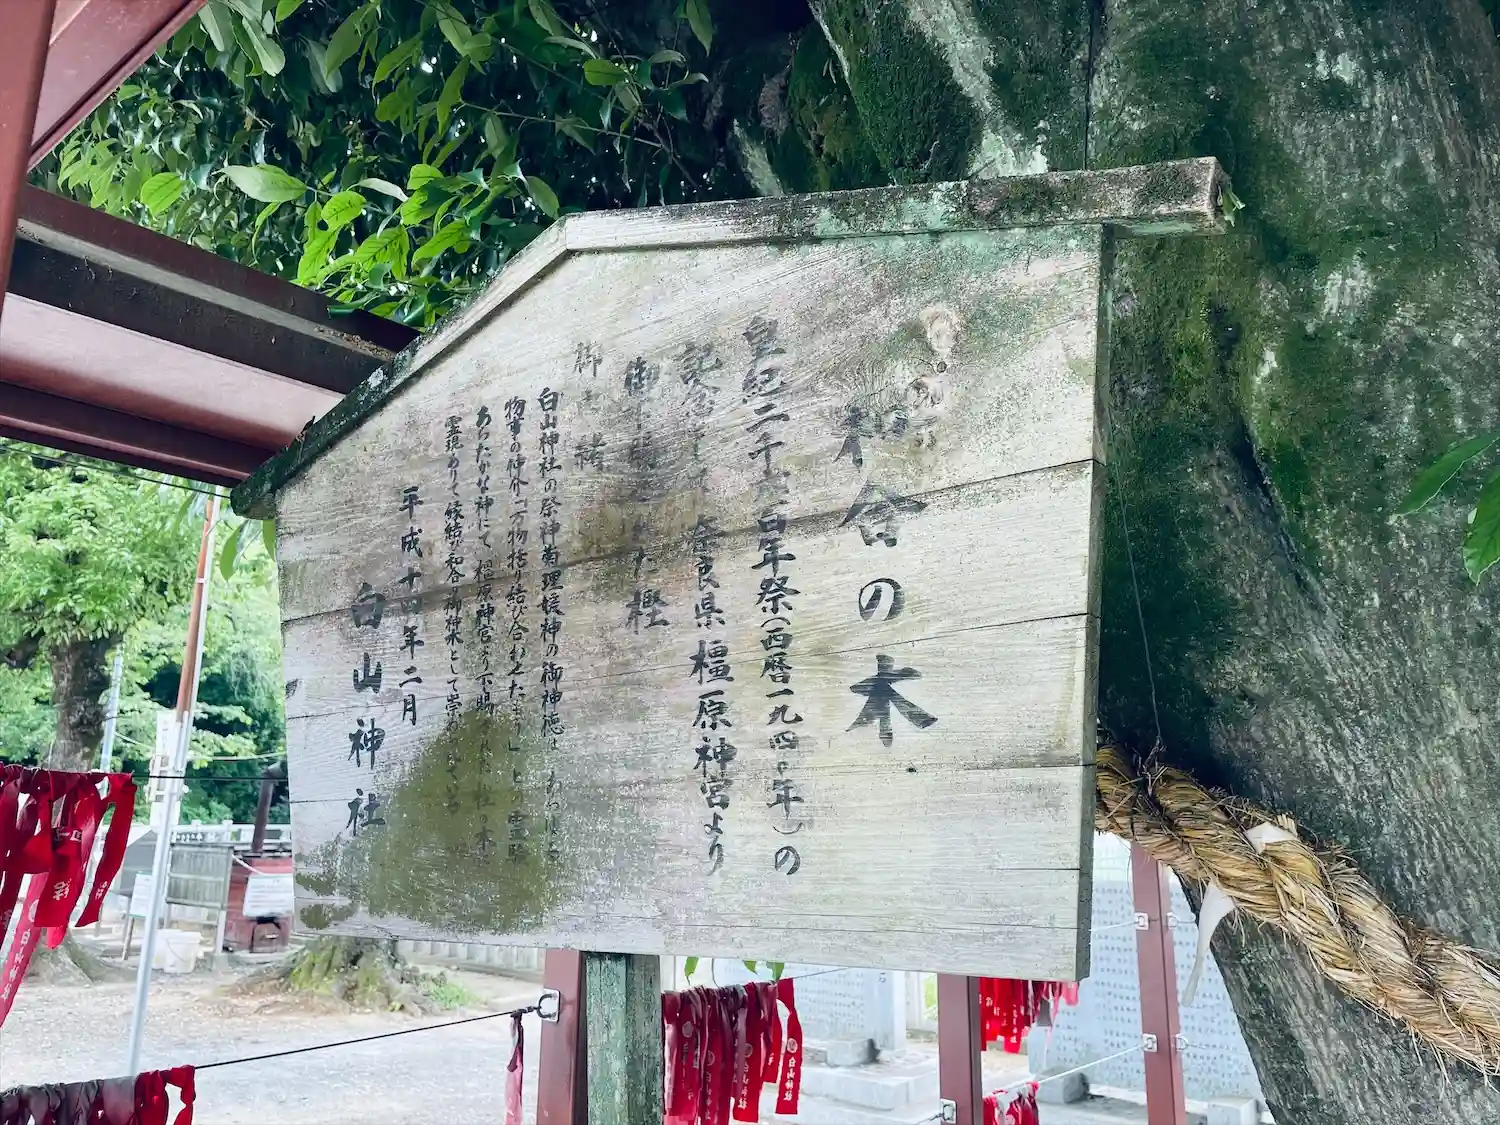 和合の木
皇紀二千六百年祭(西暦一九四〇年)の
記念 奈良県橿原神宮より
御 た樫
御 緒
白山神社の祭神菊理媛神の御神徳は あらはに
物事の仲介 万物括り結び合わせたまう」との霊験
あらたかな神にて、橿原神宮より下賜 社の木に
霊現ありて縁結び和合の御神木として崇 ている
平成十四年二月
白山神社
白山神社